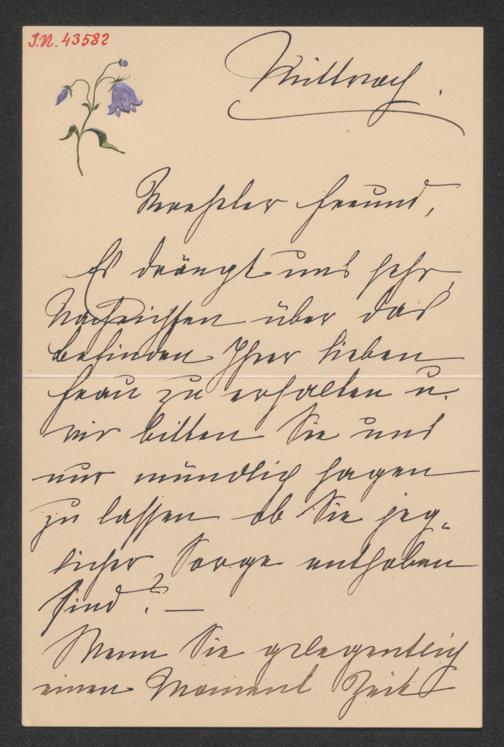 J.N. 43582
Mittwoch.
Verehrter Freund,
Es drängt uns sehr,
Nachrichten über das
Befinden Ihrer lieben
Frau zu erhalten u.
wir bitten Sie uns
nur mündlich sagen
zu lassen ob Sie jeg-
licher Sorge enthoben
sind? —
Wenn Sie gelegentlich
einen Moment Zeit